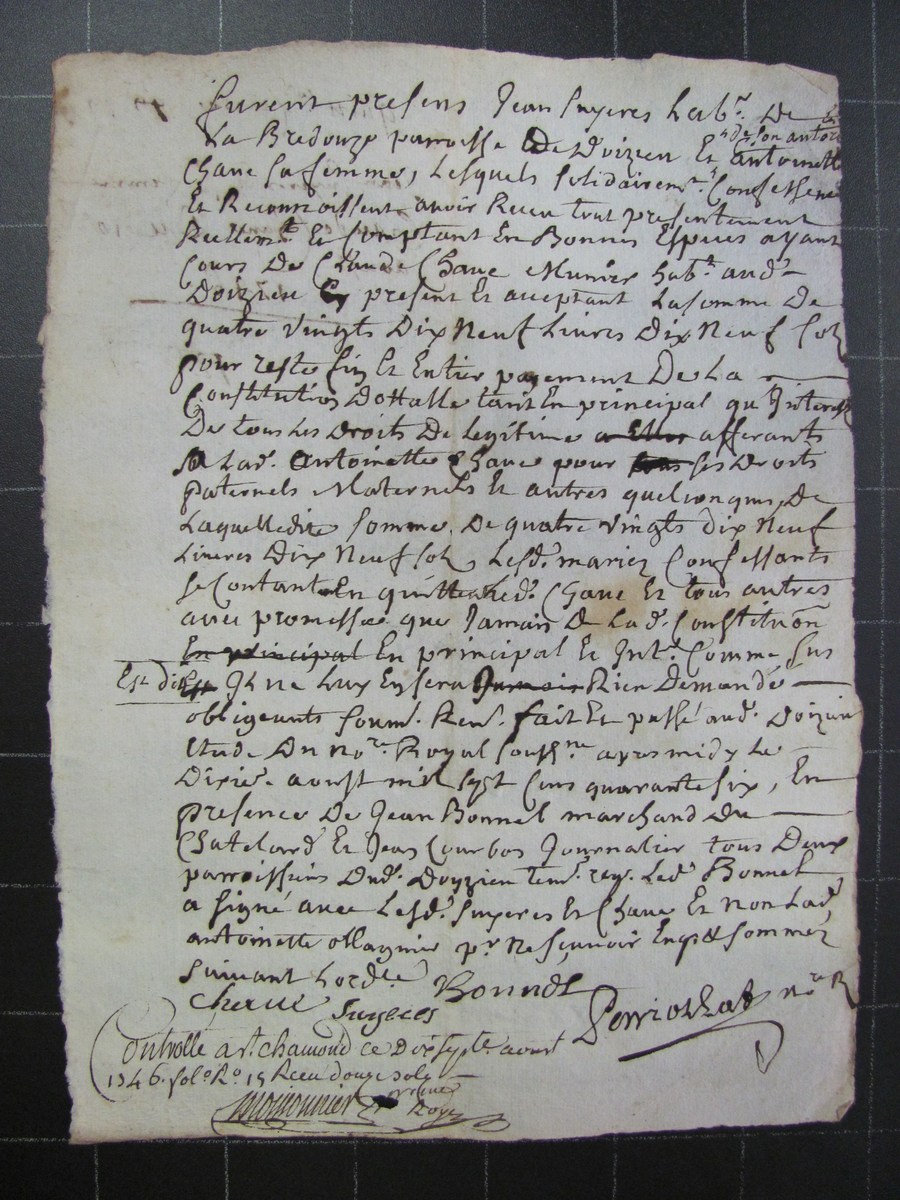 furent presens Jean Suyeres hab.^t De
La Bredouze parroisse De Doizieu Et ^n de son autori
antoinette
Chave sa femme, Lesquels solidairem.^t Confessent
Et Reconnoissent avoir Receu tout presentement
Reellem.^t Et Comptant En Bonnes Especes ayant
Cours De Claude Chave Munier hab.^t aud.
Doizieu Cy present Et acceptant La somme De
quatre vingts Dix Neuf Livres Dix Neuf sols
pour reste fin Et Entier payement De La
Constitution Dottalle tant En principal qu'Interets
De tous Les Droits De Legitime afferants
A Lad. antoinette Chave pour ses Droits
paternels Maternels Et autres quelconques, De
Laquelle dite somme, De quatre vingts Dix Neuf
Livres Dix Neuf sols Lesd. mariez Confessants
se Contantent En quittent led. Chave Et tous autres
avec promesse que Jamais De Lad. Constitution
En principal En principal Et Int.^s Comme sus
Est dit Il ne Luy En sera Jamais Rien Demandé
obligeants soum. Ren. fait Et passé aud. Doizieu
Etude Du No.^re Royal souss.^ne apres midy Le
Dixie. aoust mil sept Cens quarante six, En
presence De Jean Bonnel marchand Du
Chatelard Et Jean Courbon Journalier tous Deux
parroissiens Dud. Doyzieu tem. req. Led. Bonnel
a signé avec Lesd. Suyeres Et Chave Et non Lad.
antoinette ollagnier p.^r Ne sçavoir Enquis Et sommez
suivant Lord.^ce
Chave Suyeres Bonnel Perriolhat no.^re R
Controllé a S.^t chamond ce Dix sept. aout
1746. fol.^o R.^o 15 Receu douze sols